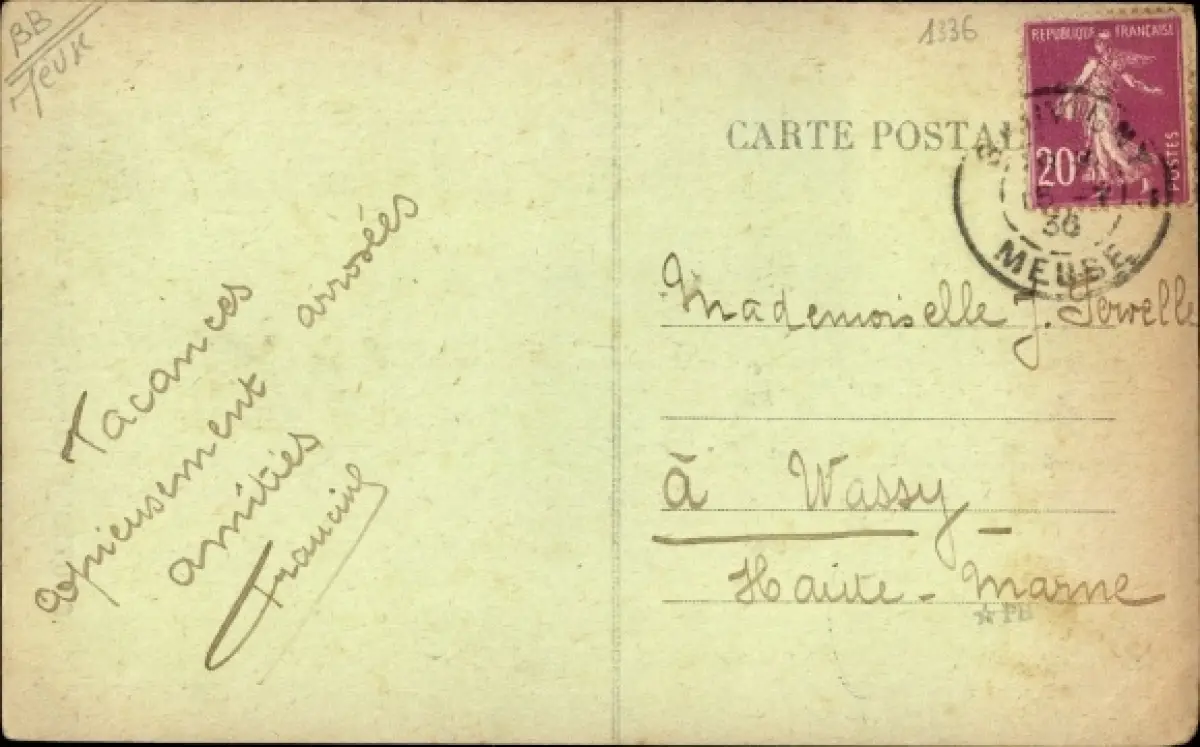 BB
Jeux
1336
REPUBLIQUE FRANÇAISE
20c
POSTES
CARTE POSTALE
36
MEUSE
Vacances
copieusement arrosées
amitiés
Francine
Mademoiselle J.
à Wassy
Haute-Marne
PB